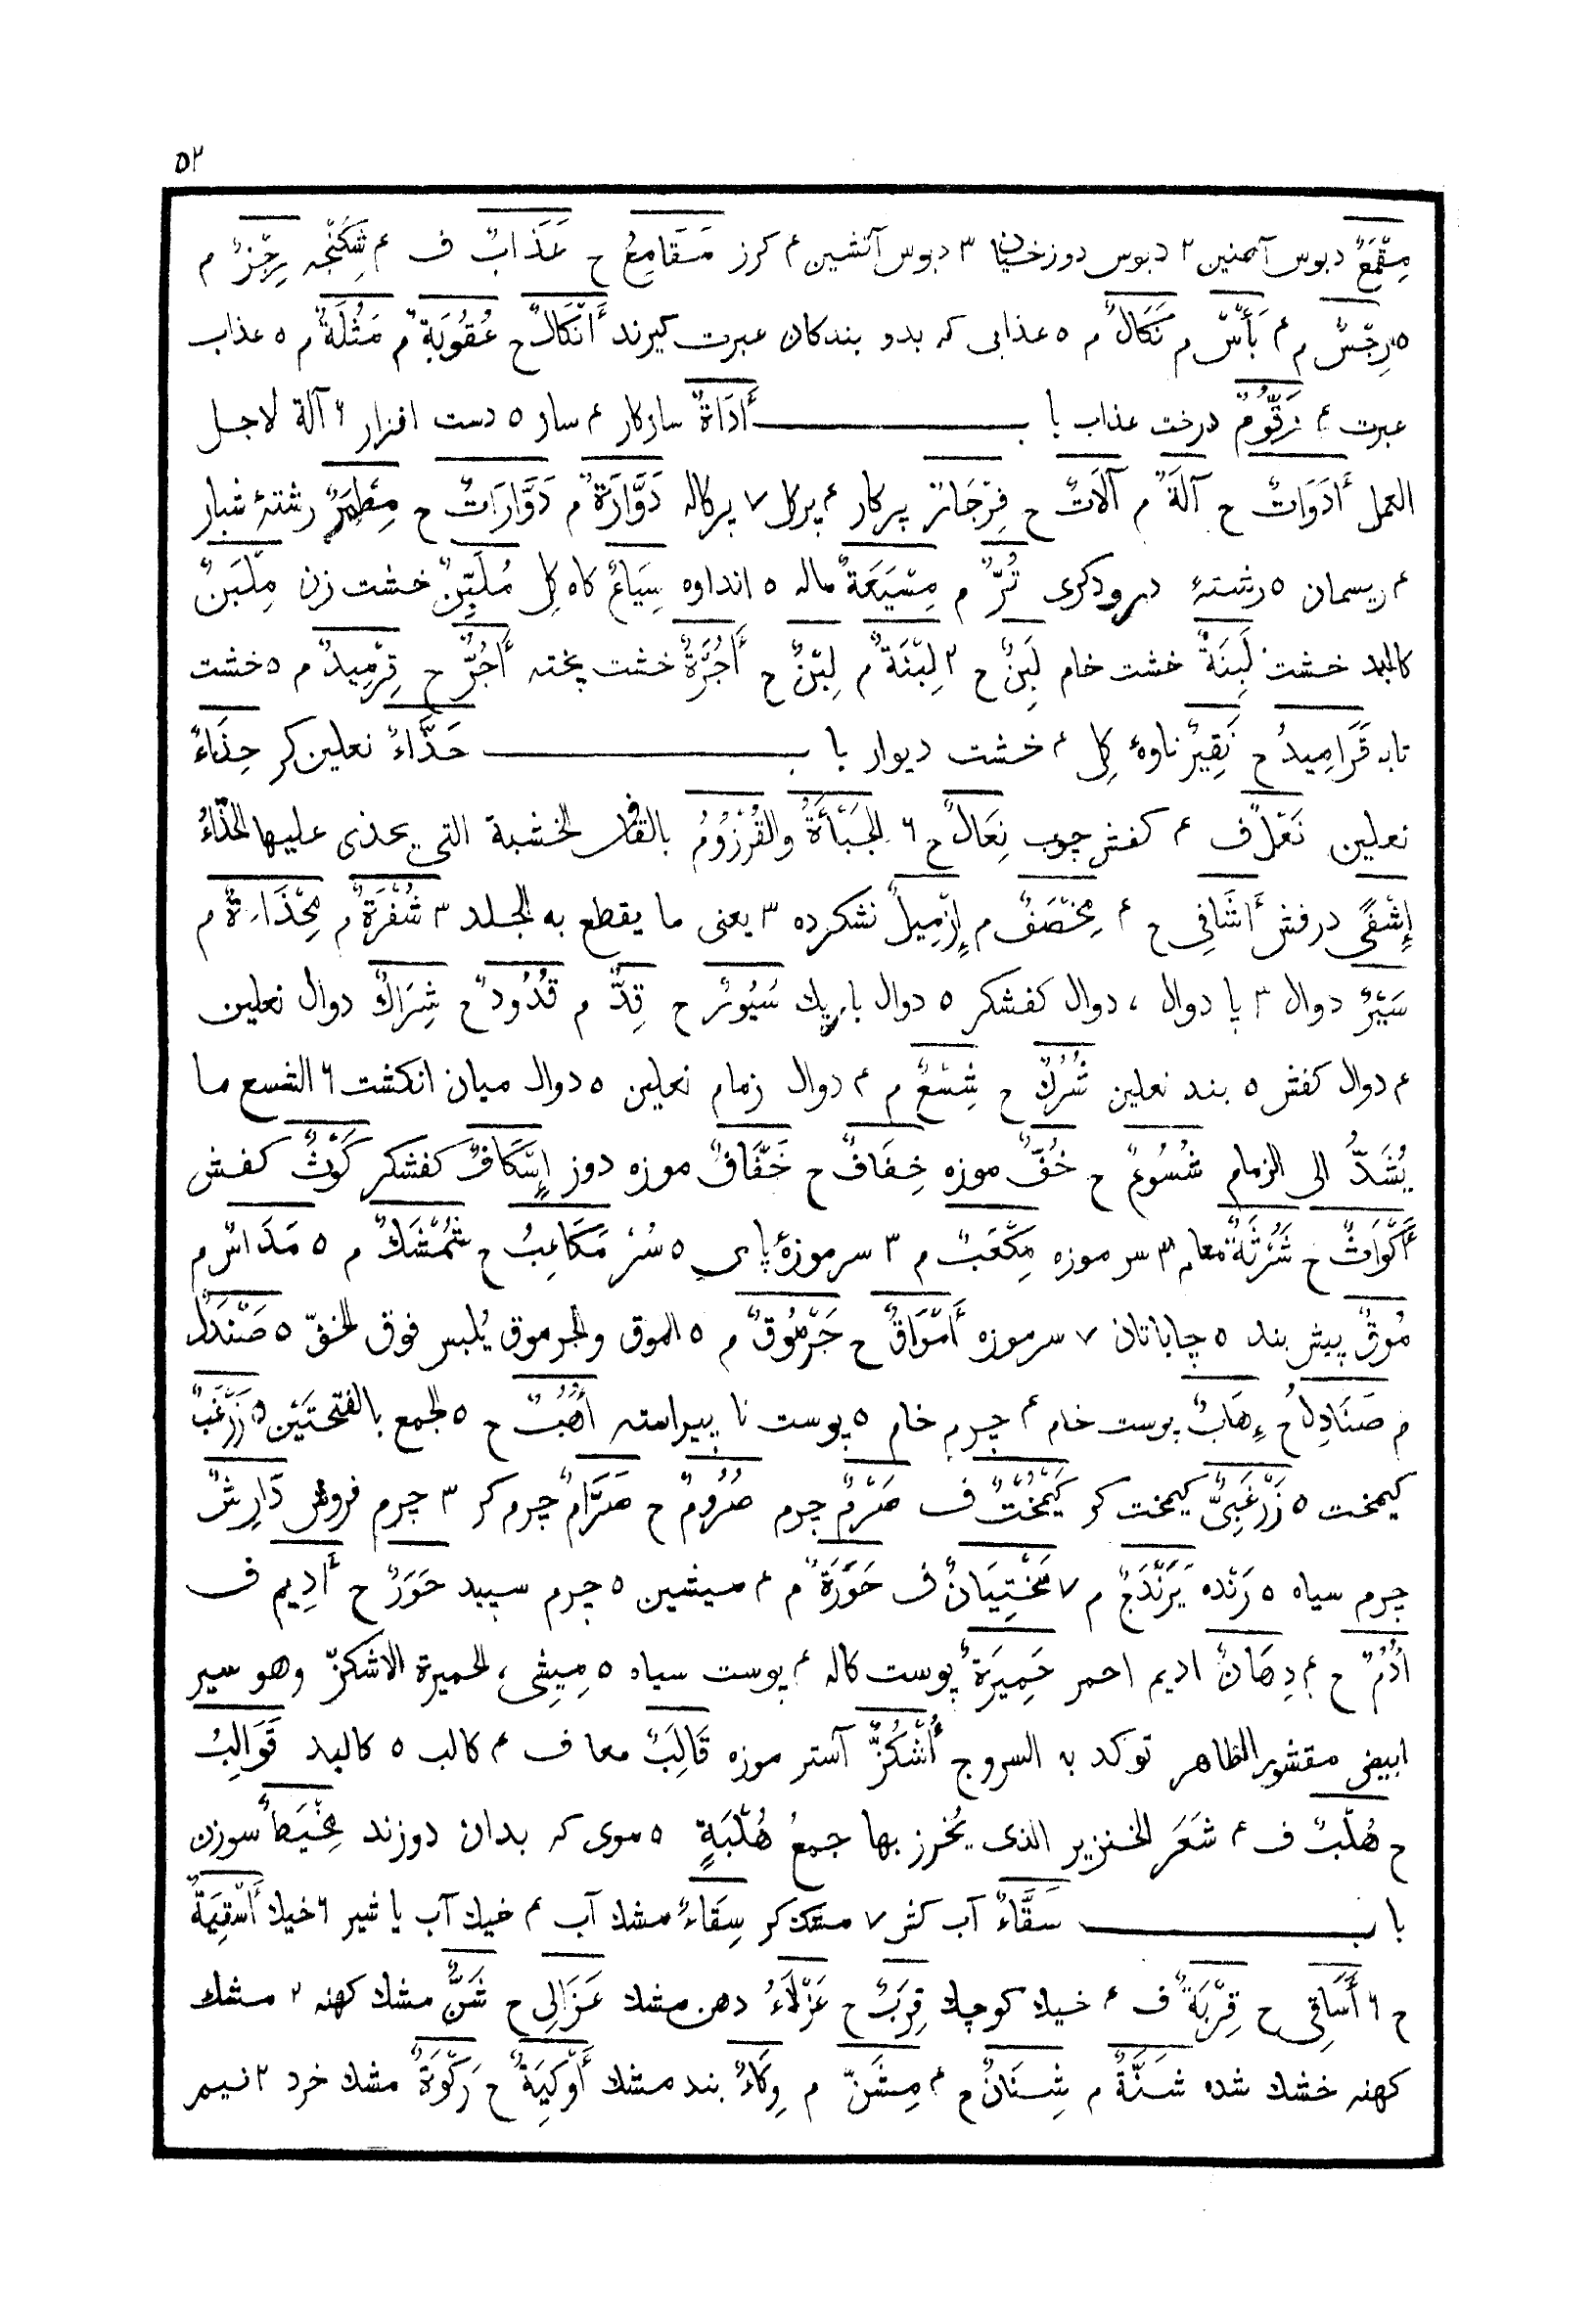 ٥٢
مِقْمَعٌ دبوس آهنین ٢ دبوس دوزخیان ٣ دبوس آتشین ۴ کرز مَقَامِعُ ح عَذَابٌ ف ۴ شِکَنْجه رِجْزٌ م
٥ رِجْسٌ م ۴ بَأْسٌ م نَکَالٌ م ٥ عذابی که بدو بندکان عبرت کیرند أَنْکَالٌ ح عُقُوبَةٌ م مَثُلَةٌ م ٥ عذاب
عبرت ۴ زَقُّومٌ درخت عذاب باب أَدَاةٌ سازکار ۴ ساز ٥ دست افزار ٦ آلة لاجل
العمل أَدَوَاتٌ ح آلَةٌ م آلَاتٌ ح فِرْجَارٌ پرکار ۴ پرکل ٧ پرکاله دَوَّارَةٌ م دَوَّارَاتٌ ح مِطْمَرٌ رشتۀ شبار
۴ ریسمان ٥ رشتۀ درودکری تُرٌّ م مِسْیَعَةٌ ماله ٥ انداوه سِیَاعٌ کاه کِل مُلَبِّنٌ خشت زن مِلْبَنٌ
کالبد خشت لَبِنَةٌ خشت خام لَبِنٌ ح ٢ لِبْنَةٌ م لِبْنٌ ح أَجُرَّةٌ خشت پخته أَجُرٌّ ح قِرْمِیدٌ م ٥ خشت
تابه قَرَامِیدُ ح نَقِیرٌ ناوۀ کِل ۴ خشت دیوار باب حَذَّاءٌ نعلین کر حِذَاءٌ
نعلین نَعْلٌ ف ۴ کفش چوب نِعَالٌ ح ٦ الجَبْأَةُ والقُرْزُومُ بالقاف الخشبة التی یحذی علیها الحذّاءُ
إِشْفًی درفش أَشَافِی ح ۴ مِخْصَفٌ م إِزْمِیلٌ نشکرده ٣ یعنی ما یقطع به الجلد ٣ شَفْرَةٌ م مِحْذَاةٌ م
سَیْرٌ دوال ٣ پا دوال ، دوال کفشکر ٥ دوال باریك سُیُورٌ ح قِدٌّ م قُدُودٌ ح شِرَاكٌ دوال نعلین
۴ دوال کفش ٥ بند نعلین شُرُكٌ ح شِسْعٌ م ۴ دوال زمام نعلین ٥ دوال میان انکشت ٦ الشسع ما
یُشَدُّ الی الزمام شُسُوعٌ ح خُفٌّ موزه خِفَافٌ ح خَفَّافٌ موزه دوز إِسْکَافٌ کفشکر کَوْثٌ کفش
أَکْوَاثٌ ح شُرْثَةٌ معا م ٣ سر موزه مِکْعَبٌ م ٣ سرموزۀ پای ٥ سُرْ مَکَاعِبُ ح شُمْشَكٌ م ٥ مَدَاسٌ م
مُوقٌ پیش بند ٥ چاباتان ٧ سرموزه أَمْوَاقٌ ح جَرْمُوقٌ م ٥ الموق والجرموق یُلبس فوق الخفّ ٥ صَنْدَلٌ
م صَنَادِلُ ح إِهَابٌ پوست خام ۴ چرم خام ٥ پوست نا پیراسته أُهُبٌ ح ٥ الجمع بالفتحتَیْن ٥ زَرْغَبٌ
کیمخت ٥ زَرْغَبِیٌّ کیمخت کر کَیْمُخْتٌ ف صَرْمٌ چرم صُرُومٌ ح صَرَّامٌ چرم کر ٣ چرم فروش دَارِشٌ
چرم سیاه ٥ رَنْده یَرَنْدَجٌ م ٧ سَخْتِیَانٌ ف حَوَرَةٌ م ۴ میشین ٥ چرم سپید حَوَرٌ ح أَدِیم ف
أُدُمٌ ح ۴ دِهَانٌ ادیم احمر حَمِیرَةٌ پوست کاله ۴ پوست سیاه ٥ مِیشِی ، الحمیرة الاشکزّ وهو سیر
ابیض مقشور الظاهر توکد به السروج أُشْکُزٌّ آستر موزه قَالَِبٌ معا ف ۴ کالب ٥ کالبد قَوَالِبُ
ح هُلْبٌ ف ۴ شَعَر الخنزیر الذی یُخرز بها جمعُ هُلْبَةٍ ٥ موی که بدان دوزند مِخْیَطٌ سوزن
باب سَقَّاءٌ آب کش ٧ مشك کر سِقَاءٌ مشك آب ۴ خیك آب یا شیر ٦ خیك أَسْقِیَةٌ
ح ٦ أَسَاقِی ح قِرْبَةٌ ف ۴ خیك کوچك قِرَبٌ ح عَزْلَاءُ دهن مشك عَزَالِی ح شَنٌّ مشك کهنه ٢ مشك
کهنه خشك شده شَنَّةٌ م شِنَانٌ ح ۴ مِشَنّ م وِکَاءٌ بند مشك أَوْکِیَةٌ ح رَکْوَةٌ مشك خرد ٢ نیم